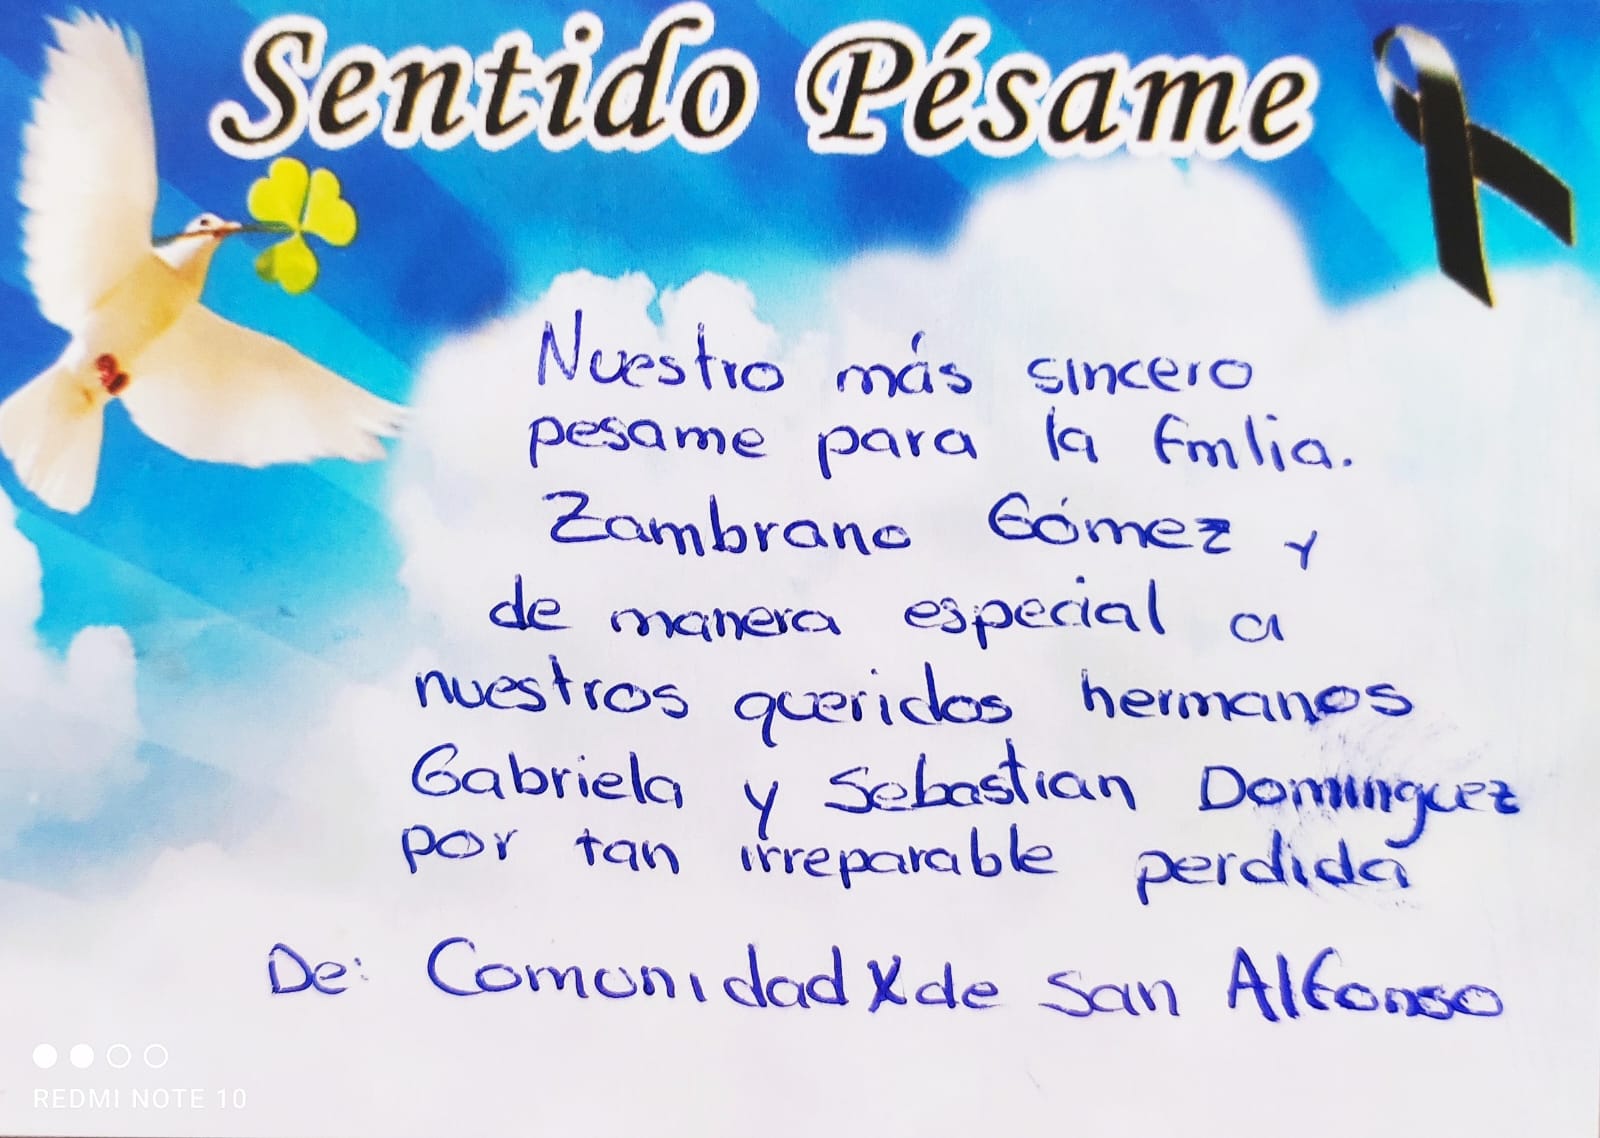 Sentido Pésame
Nuestro más sincero
pesame para la fmlia.
Zambrano Gómez y
de manera especial a
nuestros queridos hermanos
Gabriela y Sebastian Dominguez
por tan irreparable perdida
De: Comunidad X de San Alfonso
REDMI NOTE 10